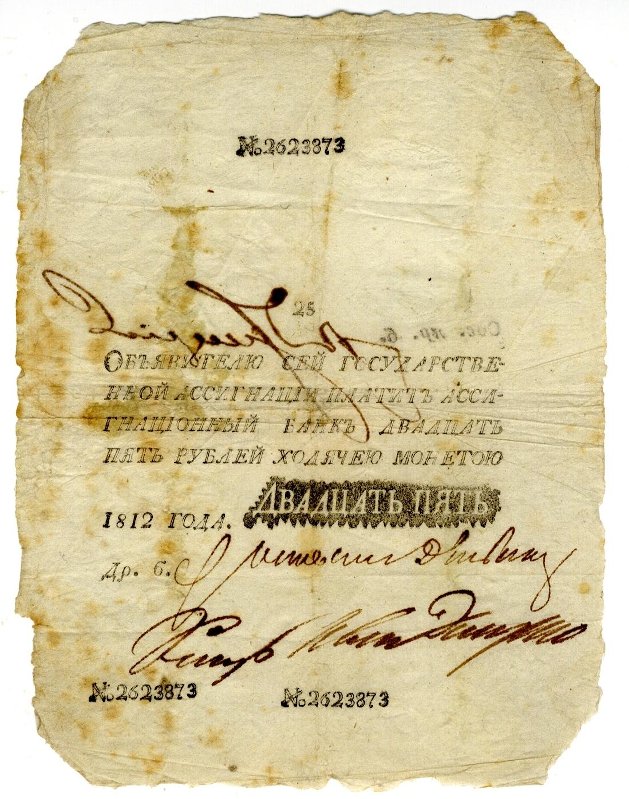 №2623873
25
ОБЪЯВИТЕЛЮ СЕЙ ГОСУДАРСТВЕ-
ННОЙ АССИГНАЦІИ ПЛАТИТЪ АССИ-
ГНАЦІОННЫЙ БАНКЪ ДВАДЦАТЬ
ПЯТЬ РУБЛЕЙ ХОДЯЧЕЮ МОНЕТОЮ
1812 ГОДА. ДВАДЦАТЬ ПЯТЬ
Др. 6.
№2623873 №2623873